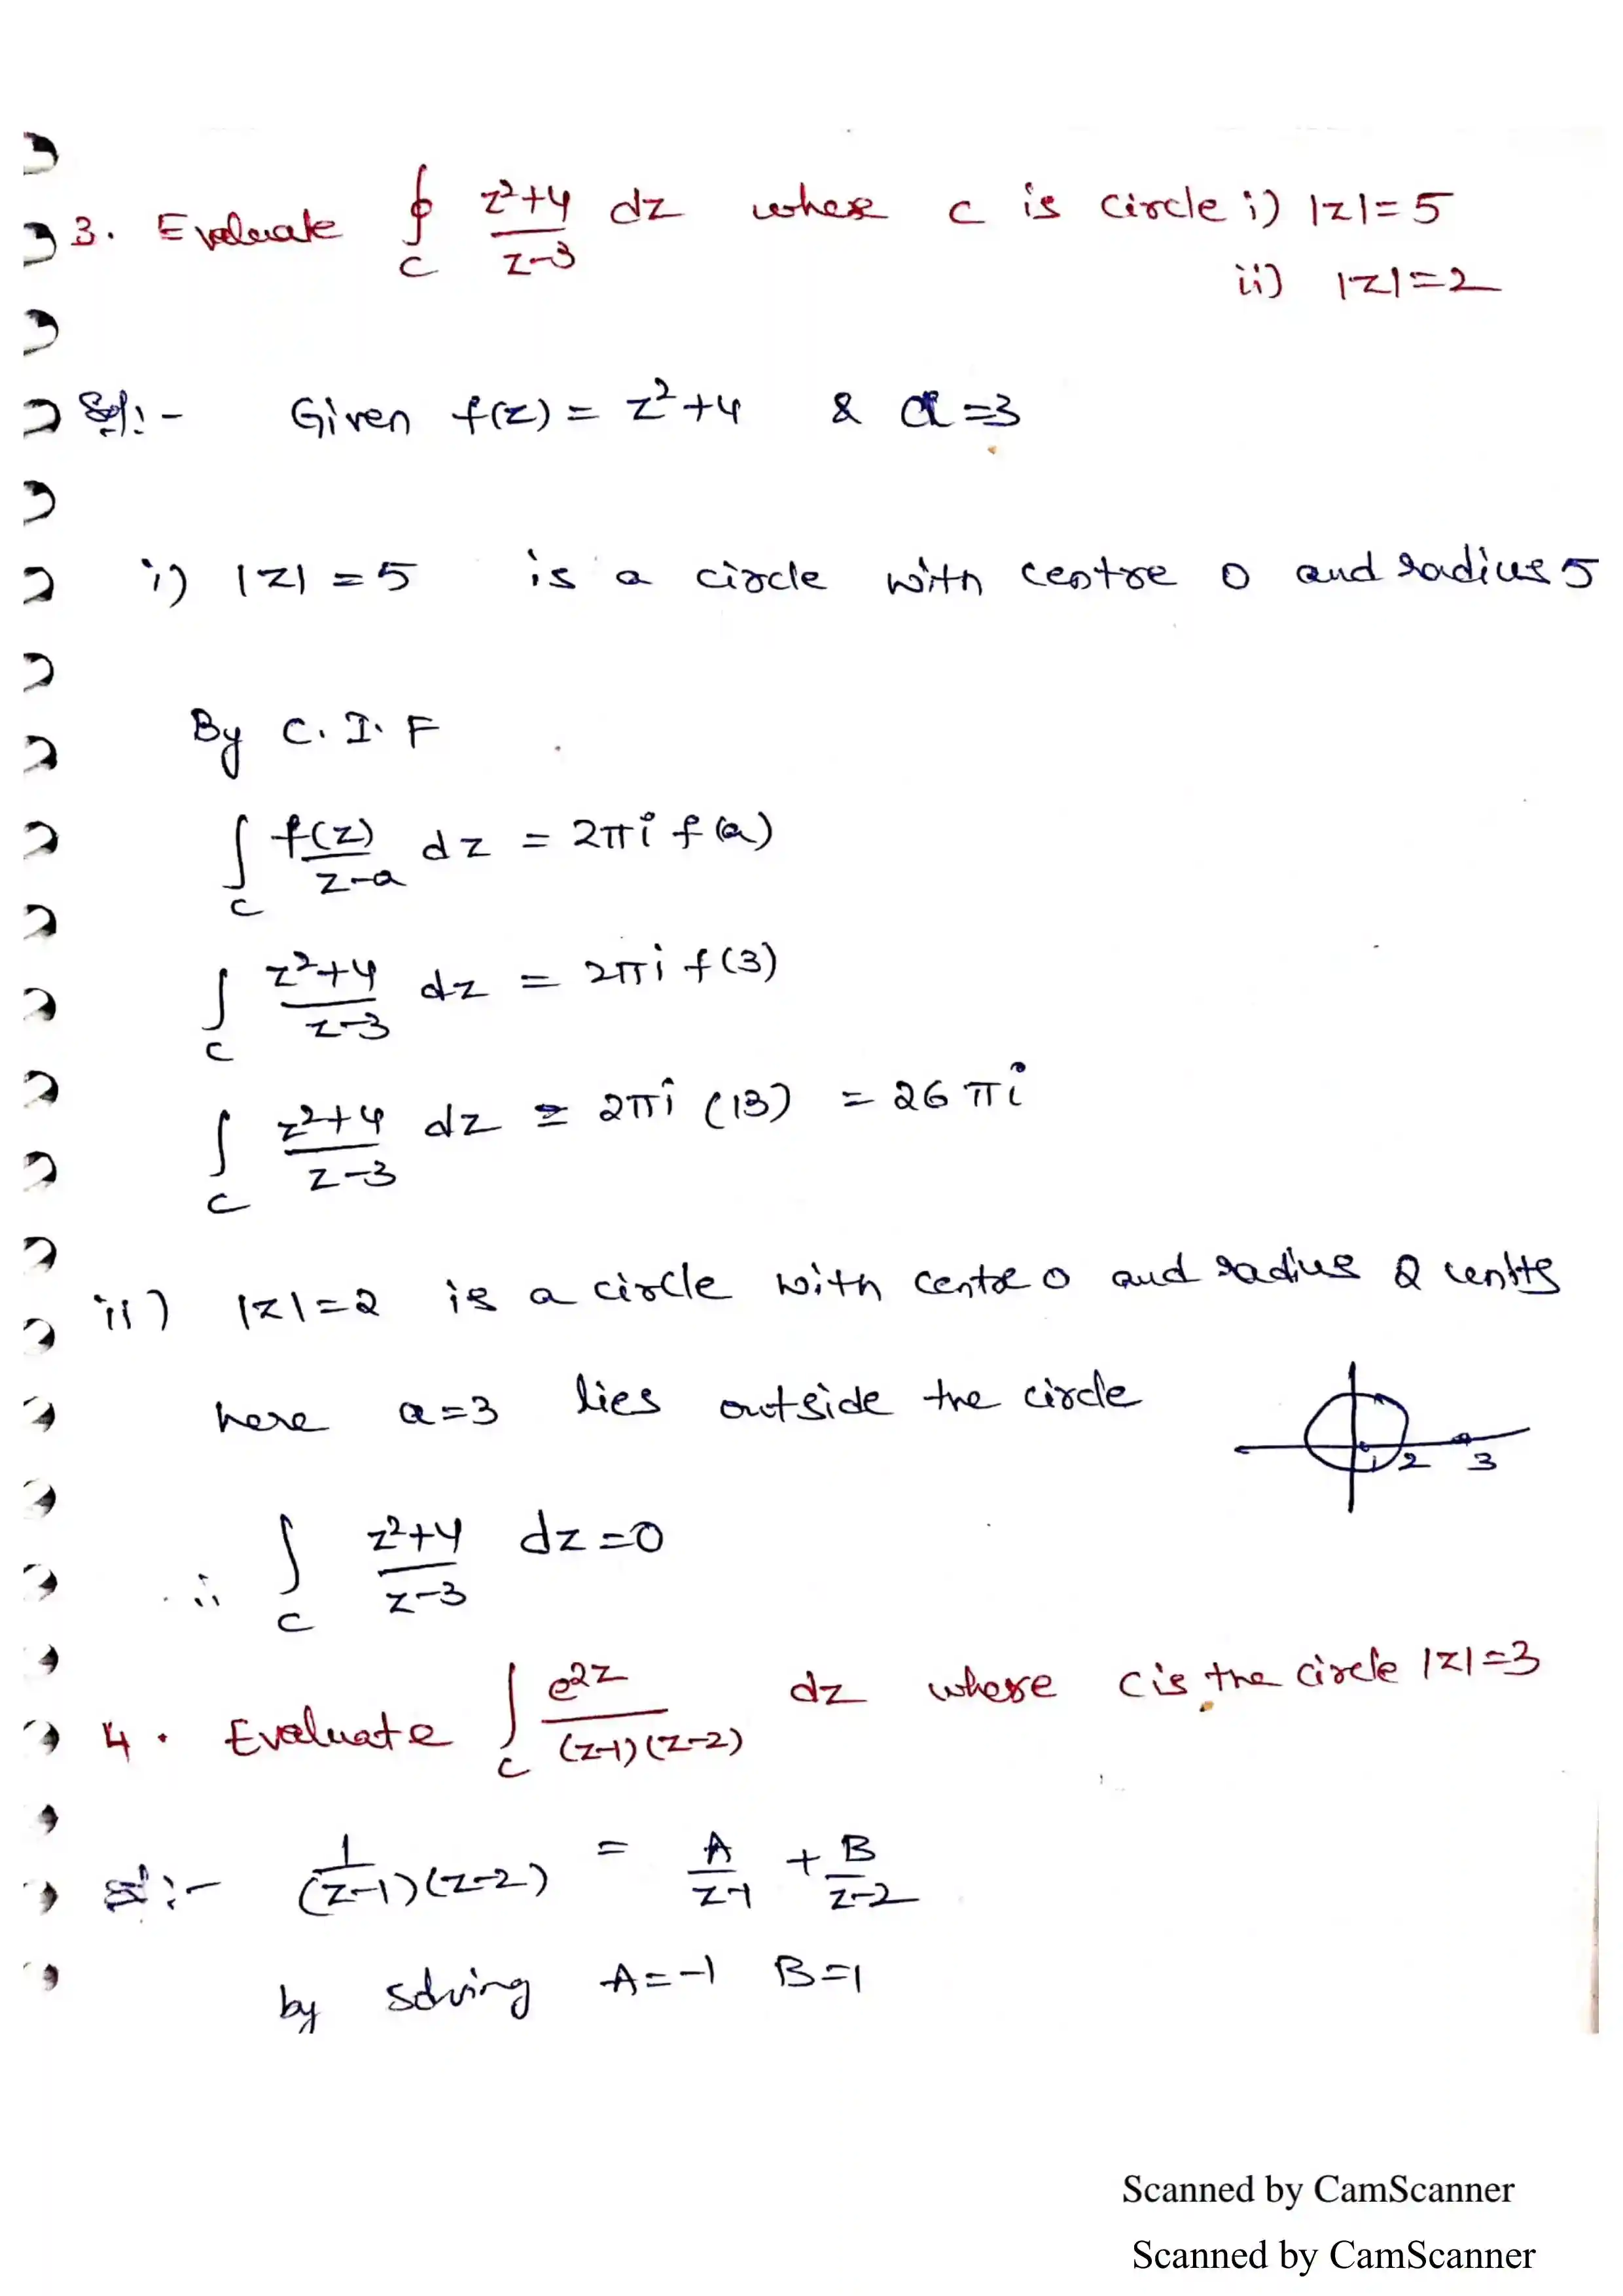 3. Evaluate ∮_C (z²+4)/(z-3) dz where c is circle i) |z|=5
ii) |z|=2
Sol:- Given f(z) = z²+4 & a=3
i) |z| = 5 is a circle with centre 0 and radius 5
By C.I.F
∫_C f(z)/(z-a) dz = 2πi f(a)
∫_C (z²+4)/(z-3) dz = 2πi f(3)
∫_C (z²+4)/(z-3) dz = 2πi (13) = 26πi
ii) |z|=2 is a circle with centre 0 and radius 2 units
here a=3 lies outside the circle
1 2 3
∴ ∫_C (z²+4)/(z-3) dz=0
4. Evaluate ∫_C e^{2z}/((z-1)(z-2)) dz where c is the circle |z|=3
Sol:- 1/((z-1)(z-2)) = A/(z-1) + B/(z-2)
by solving A=-1 B=1
Scanned by CamScanner
Scanned by CamScanner